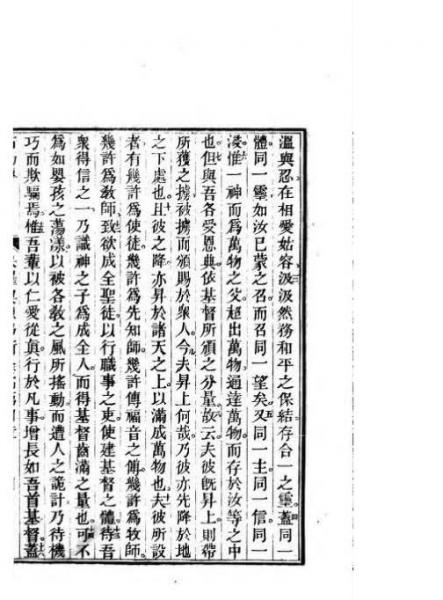 溫與忍在相愛姑容汲汲然務和平之保結存合一之靈蓋同一
體同一靈如汝已蒙之召而召同一望矣又同一主同一信同一
淩惟一神而為萬物之父超出萬物通達萬物而存於汝等之中
也但與吾各受恩典依基督所頒之分量故云夫彼既昇上則帶
所獲之擄被擄而頒賜於衆人今夫昇上何哉乃彼亦先降於地
之下處也且彼之降亦昇於諸天之上以滿成萬物也夫彼所設
者有幾許為使徒幾許為先知師幾許傳福音之傳幾許為牧師
幾許為教師致欲成全聖徒以行職事之吏使建基督之體待吾
衆得信之一乃識神之子為成全人而得基督齒滿之量也可不
為如嬰孩之蕩漾以被各教之風所搖動而遭人之詭計乃待機
巧而欺騙焉惟吾輩以仁愛從眞行於凡事增長如吾首基督蓋